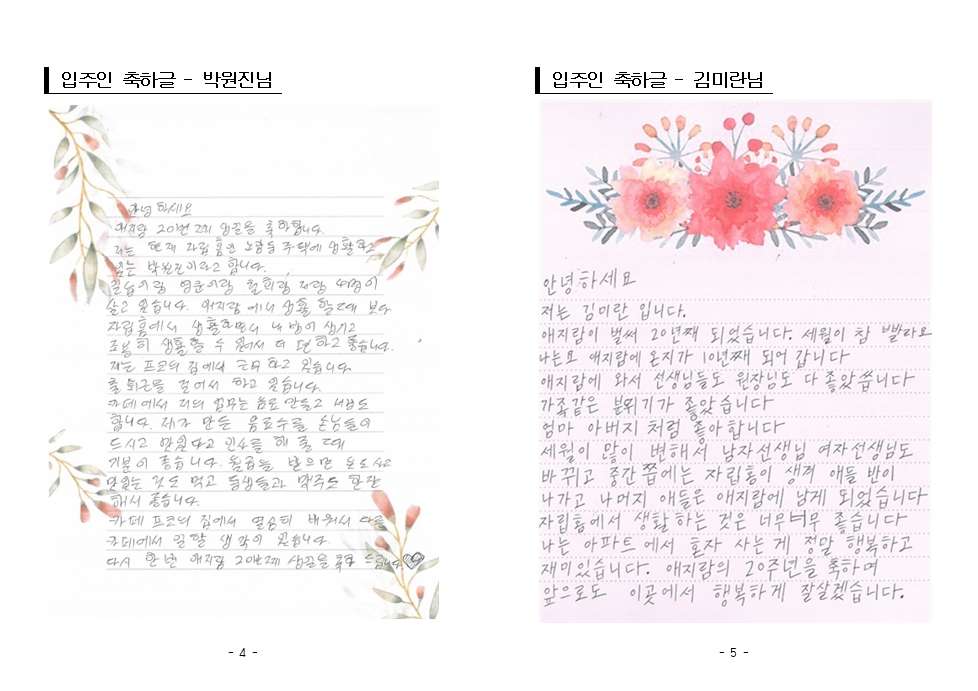 입주인 축하글 - 박원진님
안녕하세요
애지람 20번째 생일을 축하합니다.
저는 현재 자립홈인 노암동 주택에 생활하고
있는 박원진이라고 합니다.
살고 있습니다. 애지람에서 생활 할 때 보다
자립홈에서 생활하면서 내 방이 생기고
조용히 생활할 수 있어서 더 편하고 좋습니다.
저는 프코의 집에서 근무 하고 있습니다.
출 퇴근을 걸어서 하고 있습니다.
카페에서 저의 업무는 음료 만들고
합니다. 제가 만든 음료수를 손님들이
드시고 맛있다고 인사를 해 줄 때
기분이 좋습니다. 월급을 받으면
맛있는 것도 먹고 동생들과 맥주도 한잔
해서 좋습니다.
카페 프코의 집에서 열심히 배워서 다른
카페에서 일할 생각이 있습니다.
다시 한번 애지람 20번째 생일을 축하 드립니다
- 4 -
입주인 축하글 - 김미란님
안녕하세요
저는 김미란 입니다.
애지람이 벌써 20년째 되었습니다. 세월이 참 빨라요
나는요 애지람에 온지가 10년째 되어 갑니다
애지람에 와서 선생님들도 원장님도 다 좋았씁니다
가족같은 분위기가 좋았습니다
엄마 아버지 처럼 좋아합니다
세월이 많이 변해서 남자선생님 여자선생님도
바뀌고 중간쯥에는 자립홈이 생겨 애들 반이
나가고 나머지 애들은 애지람에 남게 되었습니다
자립홈에서 생활하는 것은 너무너무 좋습니다
나는 아파트에서 혼자 사는게 정말 행복하고
재미있습니다. 애지람의 20주년을 축하며
앞으로도 이곳에서 행복하게 잘살겠습니다.
- 5 -